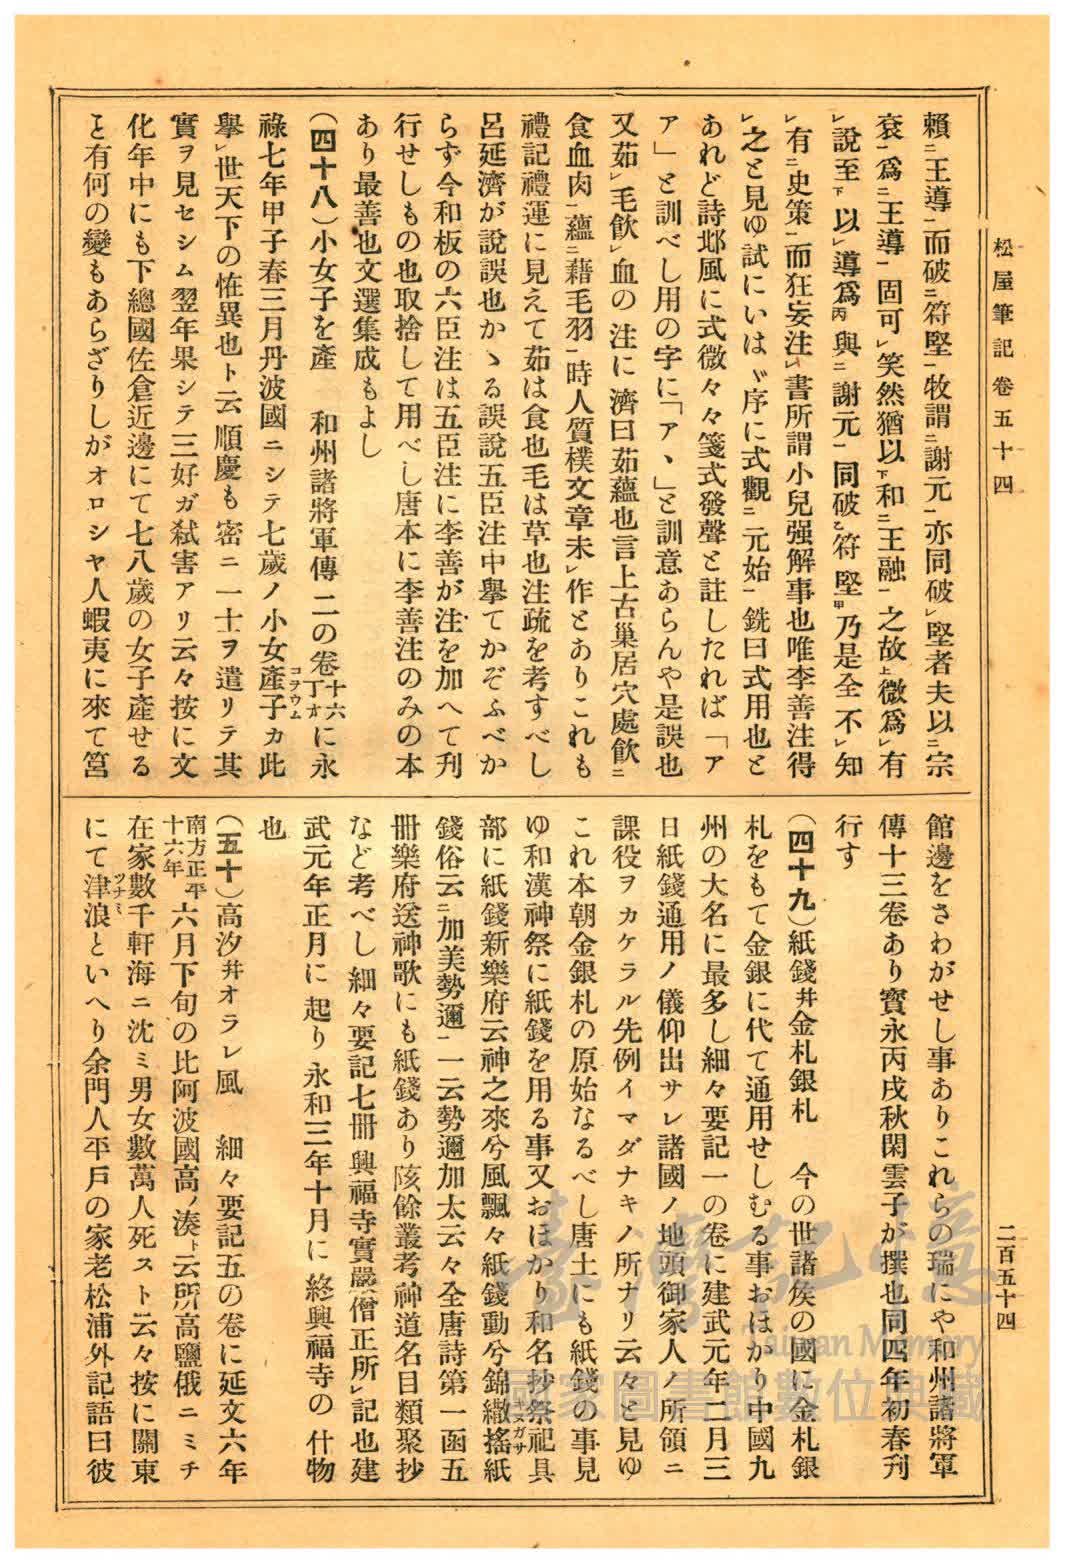 松屋筆記卷五十四
二百五十四
賴ニ王導一而破ニ符堅一牧謂ニ謝元一亦同破レ堅者夫以ニ宗
袞一爲ニ王導一固可レ笑然猶以下和ニ王融一之故上微爲レ有
レ說至下以レ導爲丙與ニ謝元一同破乙符堅甲乃是全不レ知
レ有ニ史策一而狂妄注レ書所謂小兒强解事也唯李善注得
レ之と見ゆ試にいはゞ序に式觀ニ元始一銑曰式用也と
あれど詩邶風に式微々々箋式發聲と註したれば「ア
ア」と訓べし用の字に「アヽ」と訓意あらんや是誤也
又茹レ毛飮レ血の注に濟曰茹蘊也言上古巢居穴處飮ニ
食血肉一蘊ニ藉毛羽一時人質樸文章未レ作とありこれも
禮記禮運に見えて茹は食也毛は草也注疏を考すべし
呂延濟が說誤也かゝる誤說五臣注中擧てかぞふべか
らず今和板の六臣注は五臣注に李善が注を加へて刋
行せしもの也取捨して用べし唐本に李善注のみの本
あり最善也文選集成もよし
(四十八)小女子を產　和州諸將軍傳二の卷十六丁オに永
祿七年甲子春三月丹波國ニシテ七歲ノ小女產子コヲウムカ此
擧レ世天下の恠異也ト云順慶も密ニ一士ヲ遣リテ其
實ヲ見セシム翌年果シテ三好ガ弑害アリ云々按に文
化年中にも下總國佐倉近邊にて七八歲の女子產せる
と有何の變もあらざりしがオロシヤ人蝦夷に來て筥
館邊をさわがせし事ありこれらの瑞にや和州諸將軍
傳十三卷あり寶永丙戌秋閑雲子が撰也同四年初春刋
行す
(四十九)紙錢幷金札銀札　今の世諸侯の國に金札銀
札をもて金銀に代て通用せしむる事おほかり中國九
州の大名に最多し細々要記一の卷に建武元年二月三
日紙錢通用ノ儀仰出サレ諸國ノ地頭御家人ノ所領ニ
課役ヲカケラル先例イマダナキノ所ナリ云々と見ゆ
これ本朝金銀札の原始なるべし唐土にも紙錢の事見
ゆ和漢神祭に紙錢を用る事又おほかり和名抄祭祀具
部に紙錢新樂府云神之來兮風飄々紙錢動兮錦繖キヌガサ搖紙
錢俗云ニ加美勢邇一一云勢邇加太云々全唐詩第一函五
冊樂府送神歌にも紙錢あり陔餘叢考神道名目類聚抄
など考べし細々要記七冊興福寺實嚴僧正所レ記也建
武元年正月に起り永和三年十月に終興福寺の什物
也
(五十)高汐幷オラレ風　細々要記五の卷に延文六年
南方正平十六年六月下旬の比阿波國高ノ湊ト云所高鹽俄ニミチ
在家數千軒海ニ沈ミ男女數萬人死スト云々按に關東
にて津浪ツナミといへり余門人平戶の家老松浦外記語曰彼
臺灣記憶
Taiwan Memory
國家圖書館數位典藏